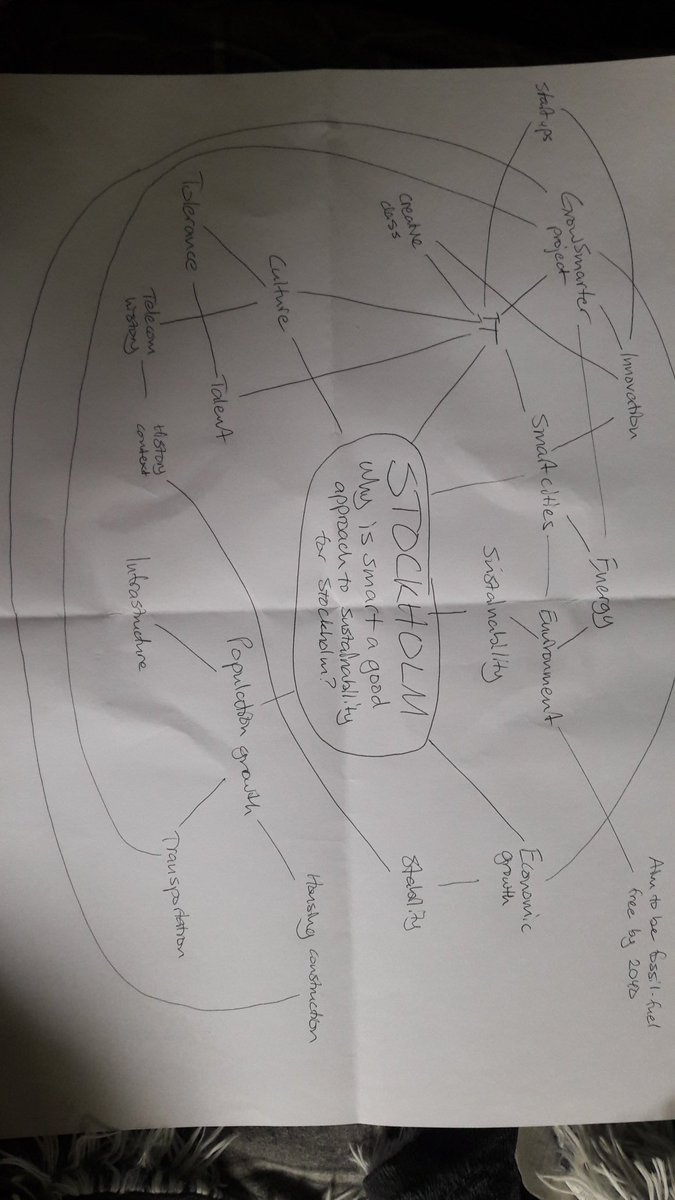 Aim to be fossil-fuel
free by 2040
Innovation
Energy
GrowSmarter
project
Environment
Start ups
Smart cities
Economic
growth
Sustainability
IT
creative
class
Stability
STOCKHOLM
Why is smart a good
approach to sustainability
for Stockholm?
Housing construction
Culture
Population growth
Talent
Tolerance
Transportation
History
context
Telecom
history
Infrastructure